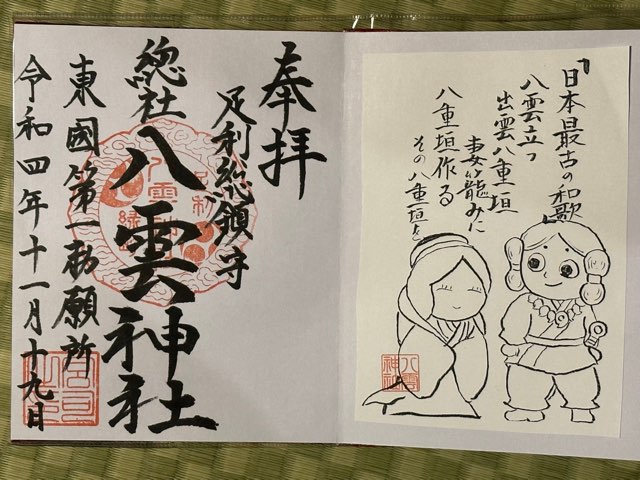 「日本最古の和歌」
八雲立つ
出雲八重垣
妻籠みに
八重垣作る
その八重垣を
八雲神社
奉拝
足利総鎮守
總社
八雲神社
東國第一勅願所
令和四年十一月十九日